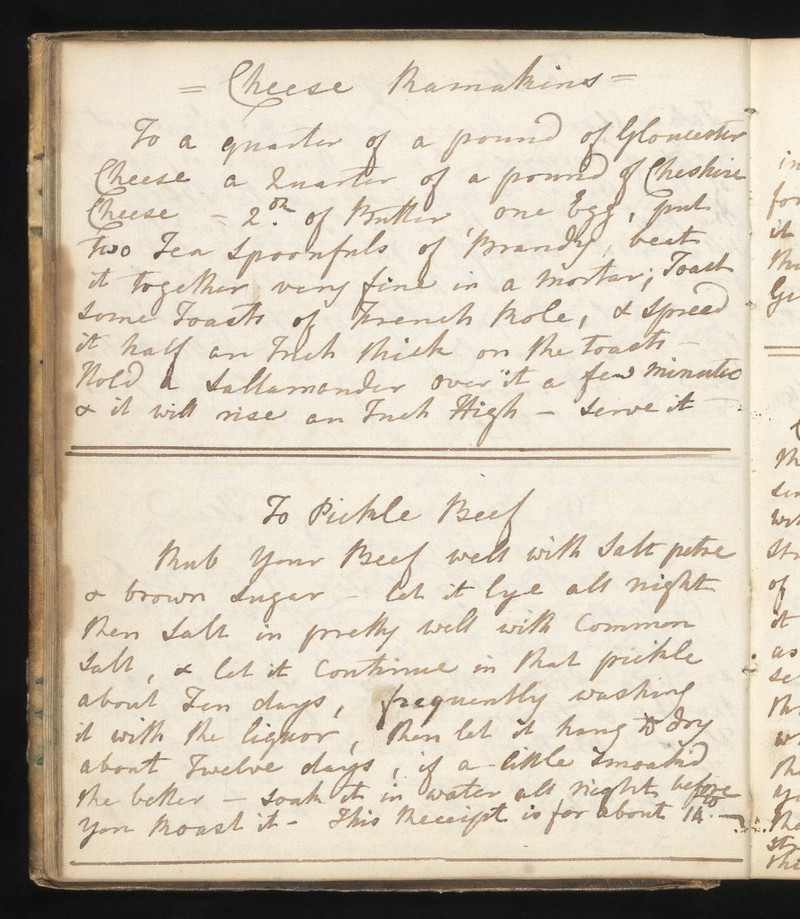 = Cheese Ramakins =
To a quarter of a pound of Gloucester
Cheese a Quarter of a pound of Cheshire
Cheese = 2 oz. of Butter one Egg, put
two Tea Spoonfuls of Brandy, beat
it together very fine in a Mortar; Toast
some Toasts of French Role, & Spreed
it half an Inch thick on the toasts -
Hold a Sallamander over it a few minutes
& it will rise an Inch High - serve it -
To Pickle Beef
Rub your Beef well with Salt petre
& brown Sugar - let it lye all night
then Salt in pretty well with Common
Salt, & let it Continue in that pickle
about Ten days, frequently washing
it with the liquor, then let it hang to dry
about Twelve days, if a little Smoak'd
the better - soak it in water all night before
you Roast it - This Receipt is for about 14
in
for
it
of
it
as